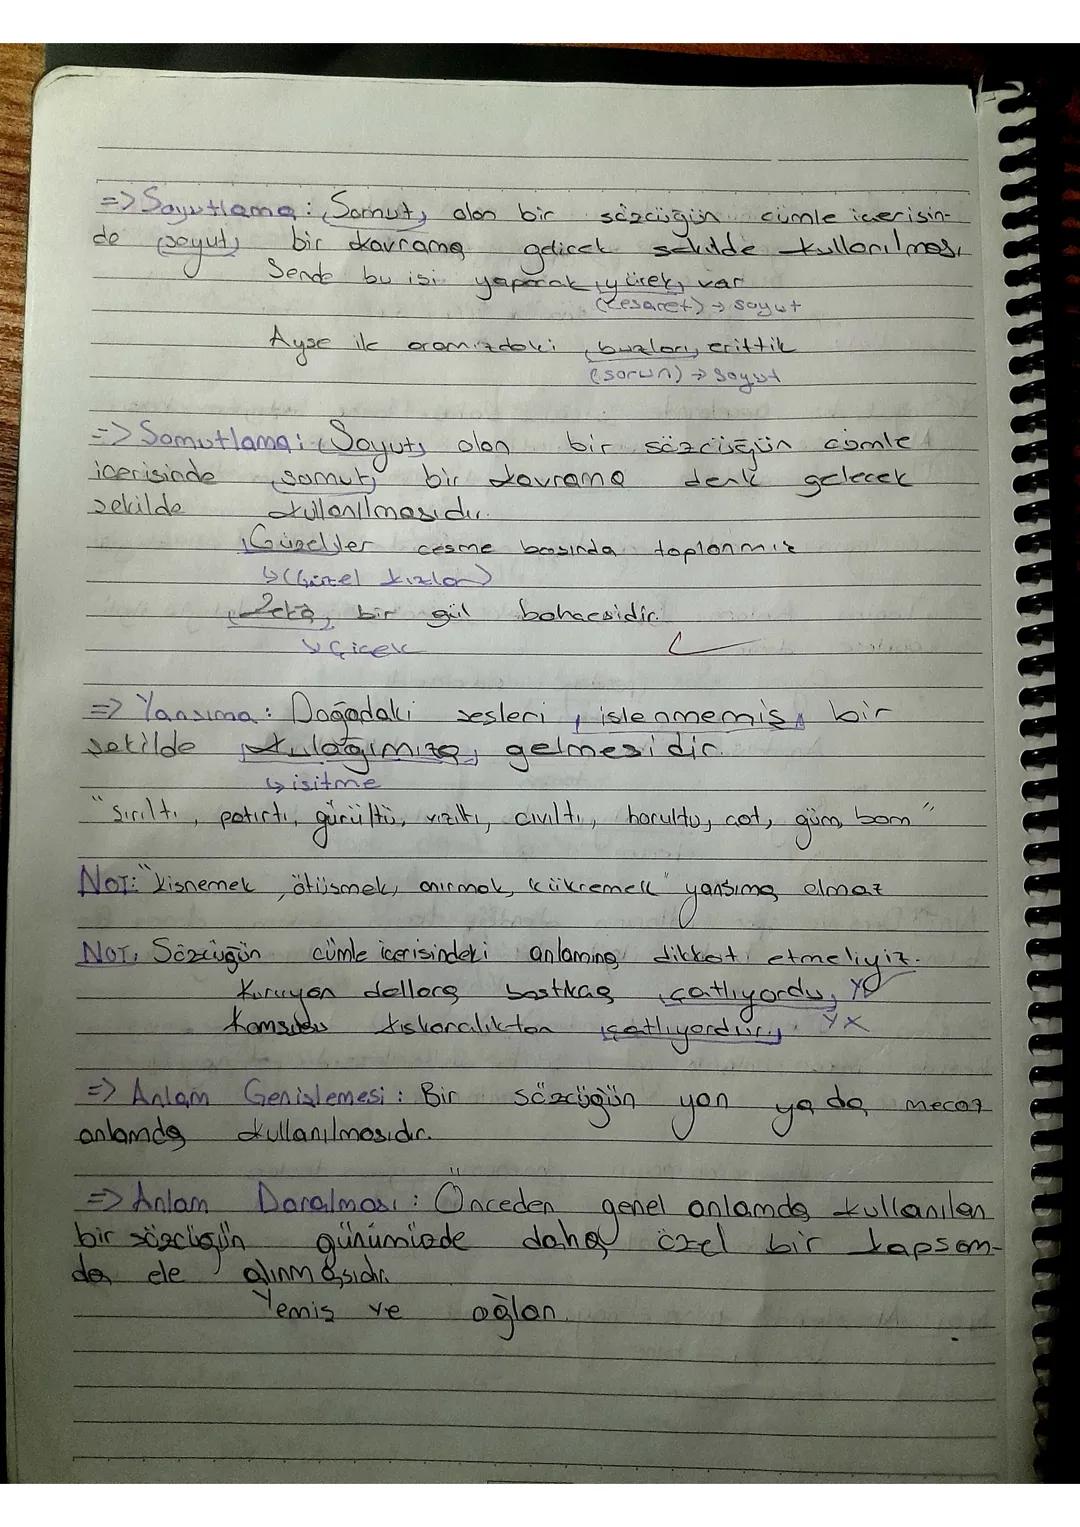 => Soyutlama : (Somut) olan bir sözcüğün cümle icerisin-
de (soyut) bir kavrama gelicek sekilde kullanılması
Sende bu isi yapacak (yürek) var
(Cesaret) → soyut
Ayse ile aramizdaki (buzları) erittik
(sorun) → soyut
=> Somutlama : (Soyut) olan bir sözcüğün cümle
icerisinde (somut) bir kavrama denk gelecek
sekilde kullanılmasıdır.
(Güzel)ler cesme basında toplanmıs
↳ (Güzel kızlar)
(Zeka) bir gül bahcesidir.
↘ Çicek
=> Yansıma : Doğadaki sesleri (islenmemis) bir
sekilde (kulağımıza) gelmesidir.
↳ isitme
"sırıltı, patırtı, gürültü, vızıltı, cıvıltı, horultu, cat, güm, bam"
NOT: "kisnemek, ötüsmek, anırmak, kükremek" yansıma olmaz
NOT: Sözcüğün cümle icerisindeki anlamına dikkat etmeliyiz.
Kuruyan dallara bastkca (catlıyordu) Y✓
Komsusu kıskanclıktan (catlıyordur) YX
=> Anlam Genislemesi : Bir sözcüğün yan ya da mecaz
anlamda kullanılmasıdır.
=> Anlam Daralması : Önceden genel anlamda kullanılan
bir sözcüğün günümüzde daha özel bir kapsam-
da ele alınmasıdır.
Yemis ve oğlan.